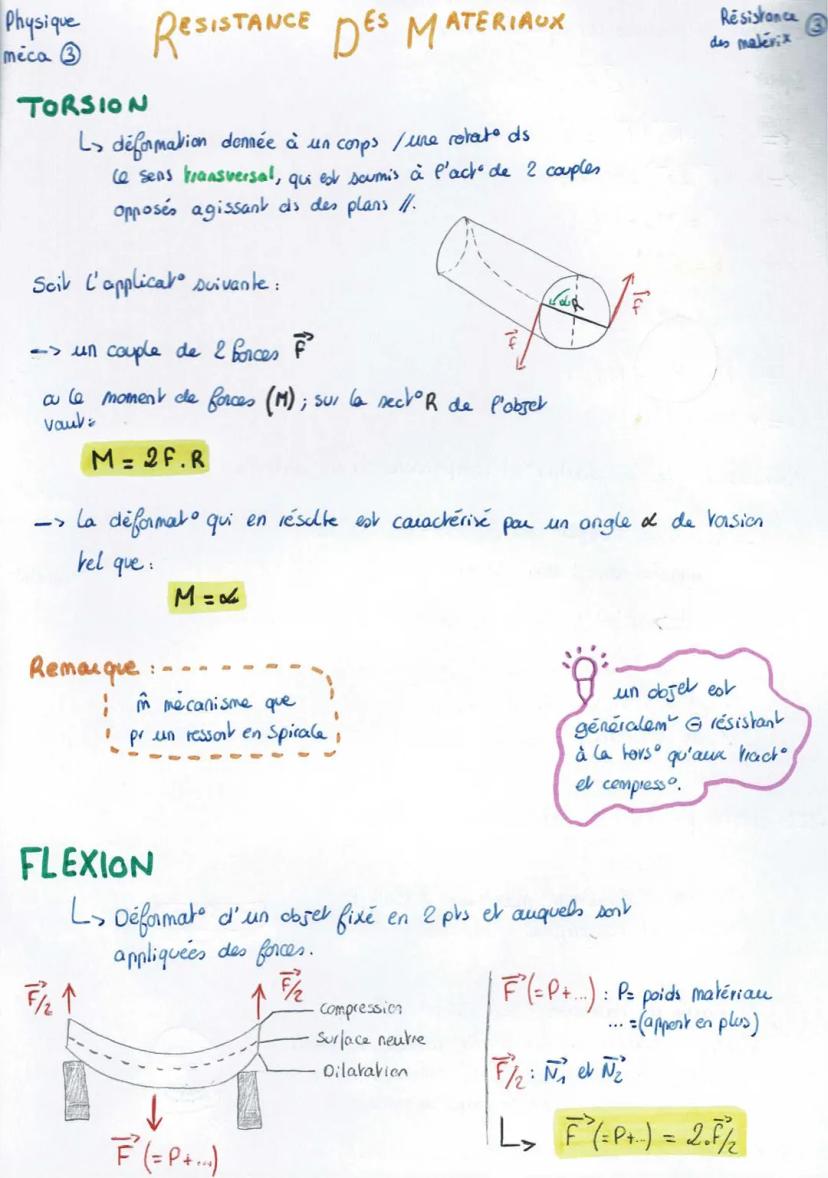 Physique
méca ③
RESISTANCE DES MATERIAUX
Résistance ③
des matérix
TORSION
↳ déformation donnée à un corps / une rotat° ds
le sens transversal, qui est soumis à l'act° de 2 couples
opposés agissant ds des plans //.
Soit l'applicat° suivante :
α R
F→
F→
–> un couple de 2 forces F→
a le moment de forces (M) ; sur la sect° R de l'objet
vaut :
M = 2F.R
–> la déformat° qui en résulte est caractérisé par un angle α de torsion
tel que :
M = α
Remarque :
m̂ mécanisme que
pr un ressort en spirale
un objet est
généralemt ⊖ résistant
à la tors° qu'aux tract°
et compress°.
FLEXION
↳ Déformat° d'un objet fixé en 2 pts et auquels sont
appliquées des forces.
F→/2
F→/2
compression
Surface neutre
Dilatation
F→ (=P+...)
F→ (=P+...) : P= poids matériau
... =(apport en plus)
F→/2 : N→1 et N→2
↳ F→ (=P+..) = 2.F→/2